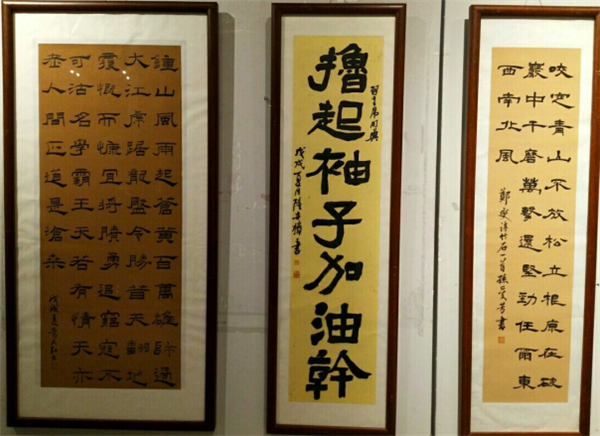 鍾山風雨起蒼黃百萬雄師過
大江虎踞龍盤今勝昔天翻地
覆慨而慷宜將賸勇追窮寇不
可沽名學霸王天若有情天亦
老人間正道是滄桑
戊戌夏
習主席用典
擼起袖子加油幹
戊戌夏月陳書
咬定青山不放松立根原在破
巖中千磨萬擊還堅勁任爾東
西南北風
鄭燮詩竹石一首書